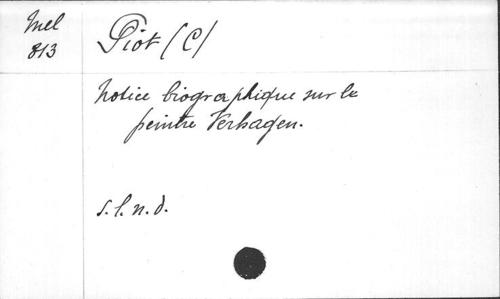 Mel
813
Piot (C)
Notice biographique sur le
peintre Verhagen.
s.l.n.d.